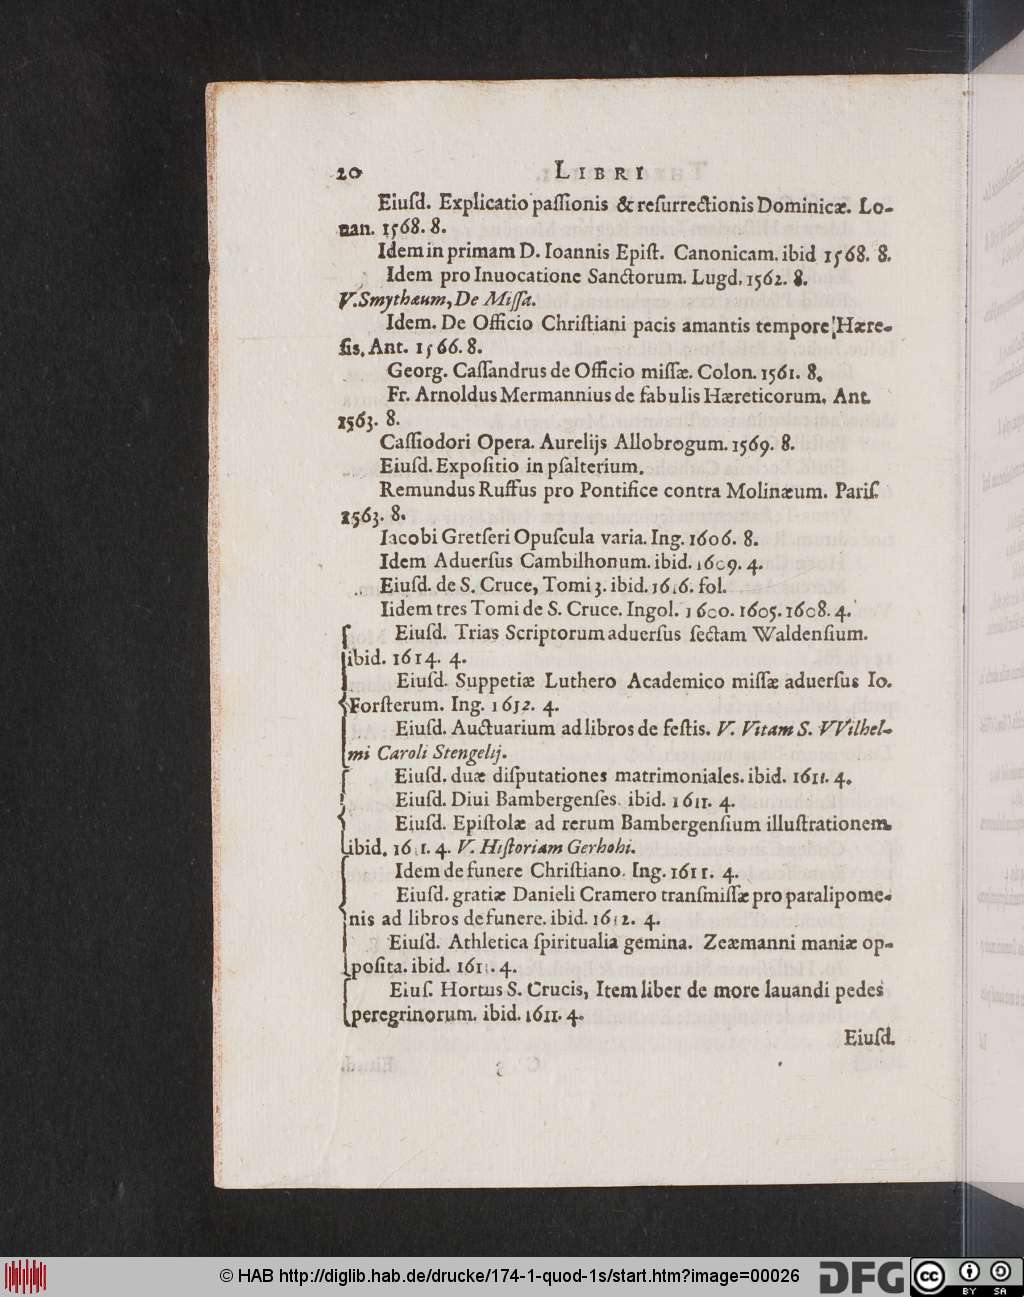 20 LIBRI
Eiuſd. Explicatio paſſionis & reſurrectionis Dominicæ. Lo-
uan. 1568. 8.
Idem in primam D. Ioannis Epiſt. Canonicam. ibid 1568. 8.
Idem pro Inuocatione Sanctorum. Lugd. 1562. 8.
V. Smythæum, De Miſſa.
Idem. De Officio Chriſtiani pacis amantis tempore Hære-
ſis, Ant. 1566. 8.
Georg. Caſſandrus de Officio miſſæ. Colon. 1561. 8.
Fr. Arnoldus Mermannius de fabulis Hæreticorum, Ant.
1563. 8.
Caſſiodori Opera. Aurelijs Allobrogum. 1569. 8.
Eiuſd. Expoſitio in pſalterium.
Remundus Ruffus pro Pontifice contra Molinæum. Pariſ.
1563. 8.
Iacobi Gretſeri Opuſcula varia. Ing. 1606. 8.
Idem Aduerſus Cambilhonum. ibid. 1609. 4.
Eiuſd. de S. Cruce, Tomi 3. ibid. 1616. fol.
Iidem tres Tomi de S. Cruce. Ingol. 1600. 1605. 1608. 4.
Eiuſd. Trias Scriptorum aduerſus ſectam Waldenſium.
ibid. 1614. 4.
Eiuſd. Suppetiæ Luthero Academico miſſæ aduerſus Io.
Forſterum. Ing. 1612. 4.
Eiuſd. Auctuarium ad libros de feſtis. V. Vitam S. VVilhel-
mi Caroli Stengelij.
Eiuſd. duæ diſputationes matrimoniales. ibid. 1611. 4.
Eiuſd. Diui Bambergenſes. ibid. 1611. 4.
Eiuſd. Epiſtolæ ad rerum Bambergenſium illuſtrationem.
ibid. 1611. 4. V. Hiſtoriam Gerhohi.
Idem de funere Chriſtiano. Ing. 1611. 4.
Eiuſd. gratiæ Danieli Cramero tranſmiſſæ pro paralipome-
nis ad libros de funere. ibid. 1612. 4.
Eiuſd. Athletica ſpiritualia gemina. Zeæmanni maniæ op-
poſita. ibid. 1611. 4.
Eiuſ. Hortus S. Crucis, Item liber de more lauandi pedes
peregrinorum. ibid. 1611. 4.
Eiuſd.
© HAB http://diglib.hab.de/drucke/174-1-quod-1s/start.htm?image=00026 DFG cc BY SA